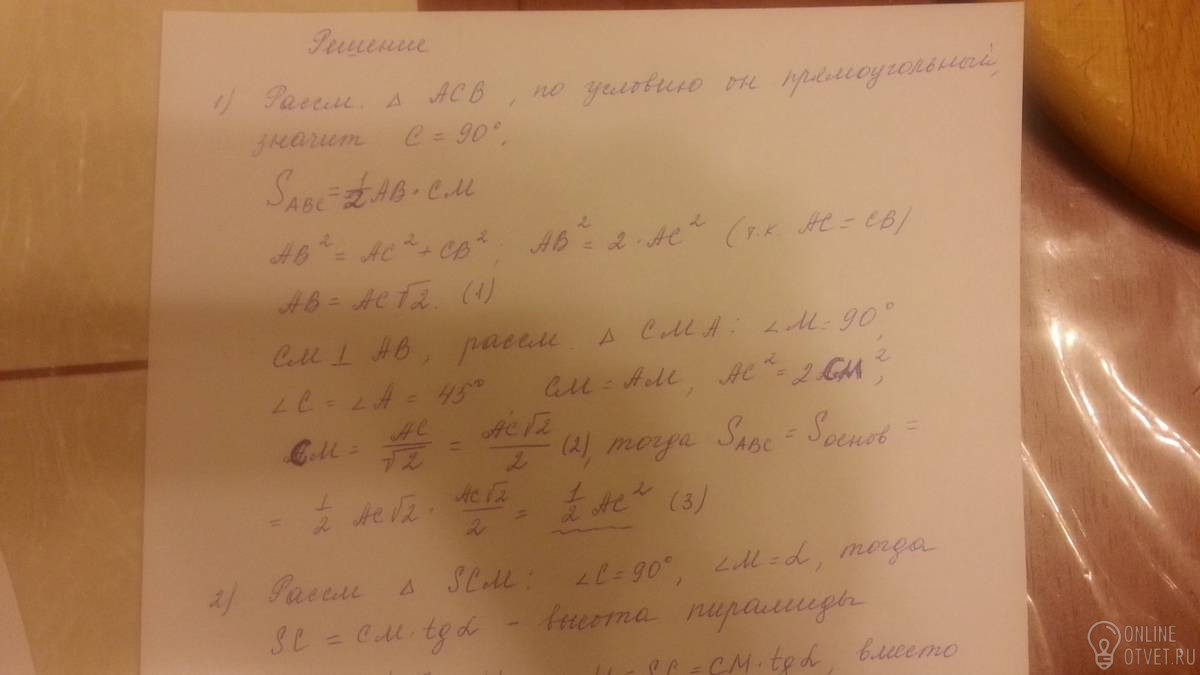 Решение
1) Рассм. △ АСВ, по условию он прямоугольный,
значит С = 90°,
S_ABC = 1/2 AB · CM
AB² = AC² + CB²; AB² = 2 · AC² (т.к. AC = CB)
AB = AC√2. (1)
CM ⊥ AB, рассм. △ CMA: ∠M = 90°,
∠C = ∠A = 45° CM = AM, AC² = 2CM²,
CM = AC/√2 = AC√2/2 (2), тогда S_ABC = S_основ =
= 1/2 AC√2 · AC√2/2 = 1/2 AC² (3)
2) Рассм △ SCM: ∠C = 90°, ∠M = α, тогда
SC = CM · tgα - высота пирамиды
= SC = CM · tgα, вместо
ONLINE
OTVET.RU